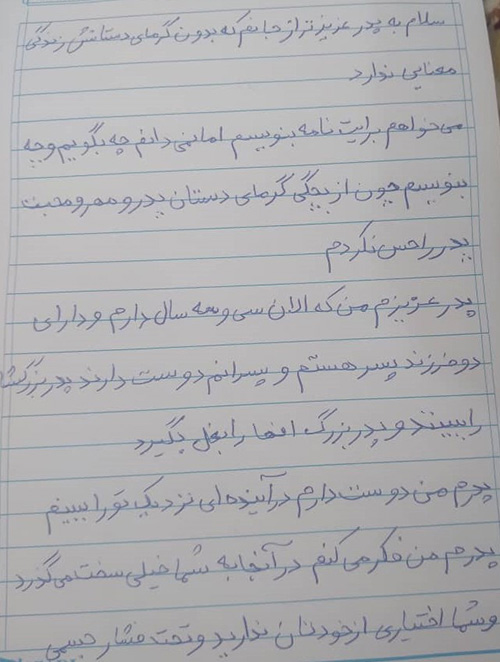 سلام به پدر عزیزتر از جانم که بدون گرمای دستانش زندگی
معنایی ندارد
می‌خواهم برایت نامه بنویسم اما نمی‌دانم چه بگویم و چه
بنویسم چون از بچگی گرمای دستان پدر و مهر و محبت
پدر را حس نکردم
پدر عزیزم من که الان سی و سه سال دارم و دارای
دو فرزند پسر هستم و پسرانم دوست دارند پدربزرگشا
را ببینند و پدربزرگ آنها را بغل بگیرد
پدرم من دوست دارم در آینده‌ای نزدیک تو را ببینم
پدرم من فکر می کنم در آنجا به شما خیلی سخت می‌گذرد
و شما اختیاری از خودتان ندارید و تحت فشار